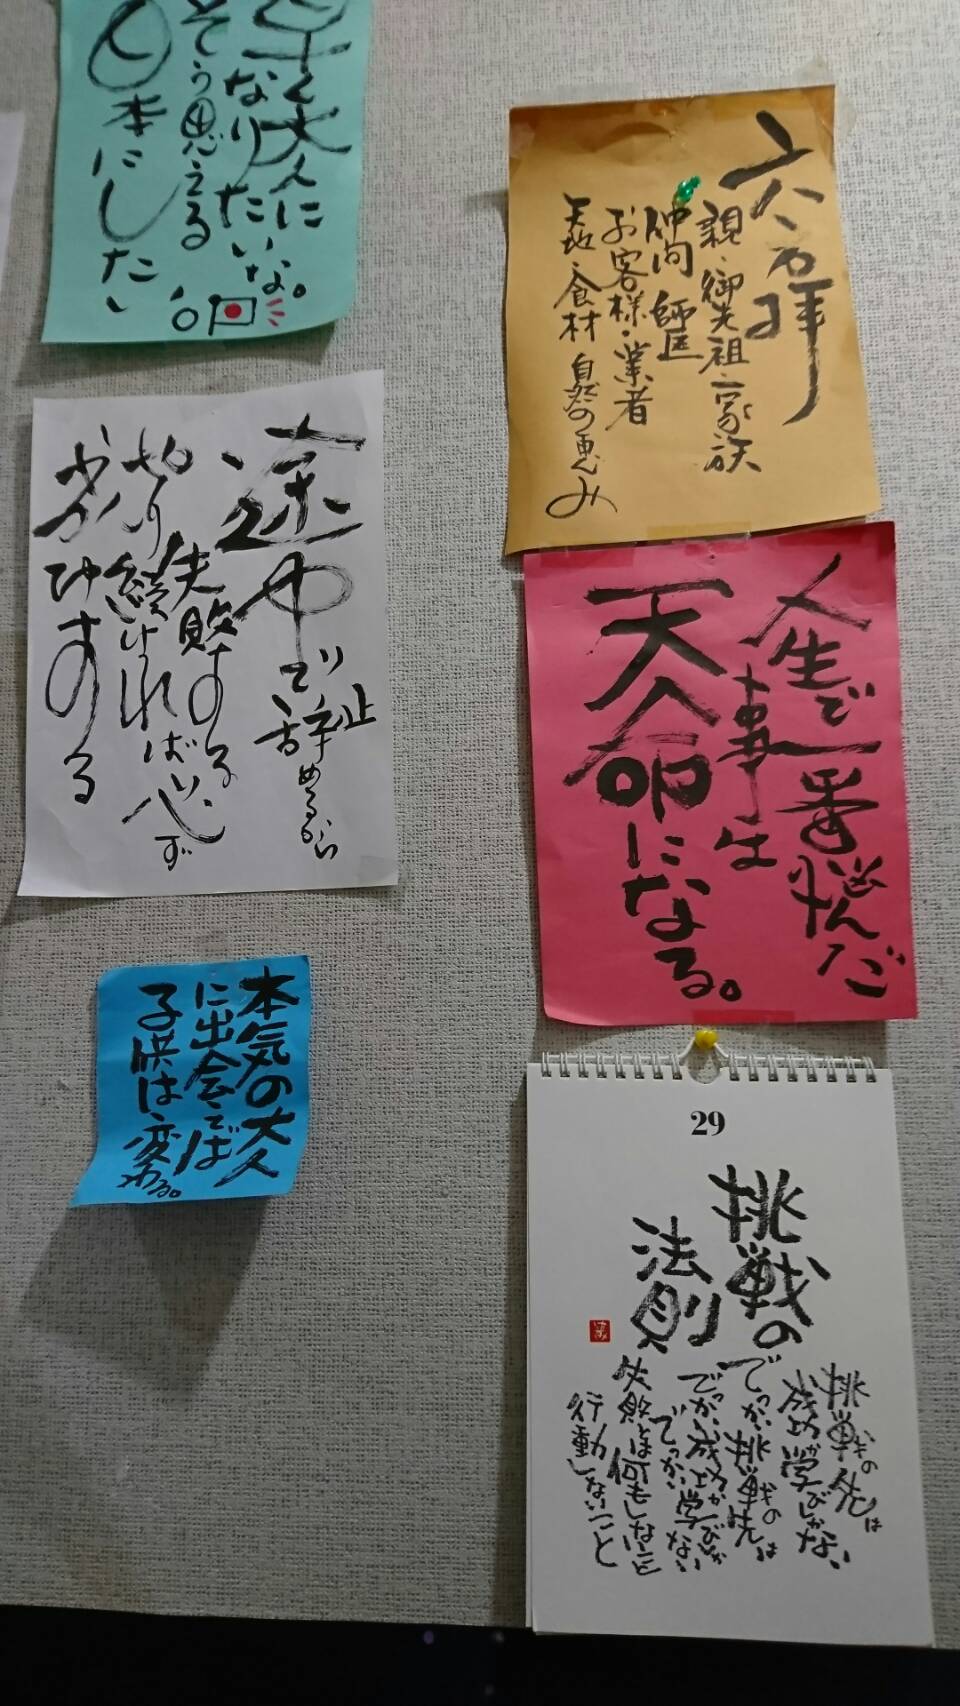 早く大人に
なりたいな。
そう思える
日本にしたい。
六方拝
親・御先祖・家族
仲間 師匠
お客様・業者
天地・食材 自然の恵み
途中で
辞めるから
失敗する
やり続ければ必ず
人生で一番悩んだ
事は
天命になる。
本気の大人
に出会えば
子供は、変わる。
29
挑戦の
法則
挑戦の先は
成功か学びしかない
でっかい挑戦の先は
でっかい成功か
でっかい学びがない
失敗とは何もしないこと
行動しないこと